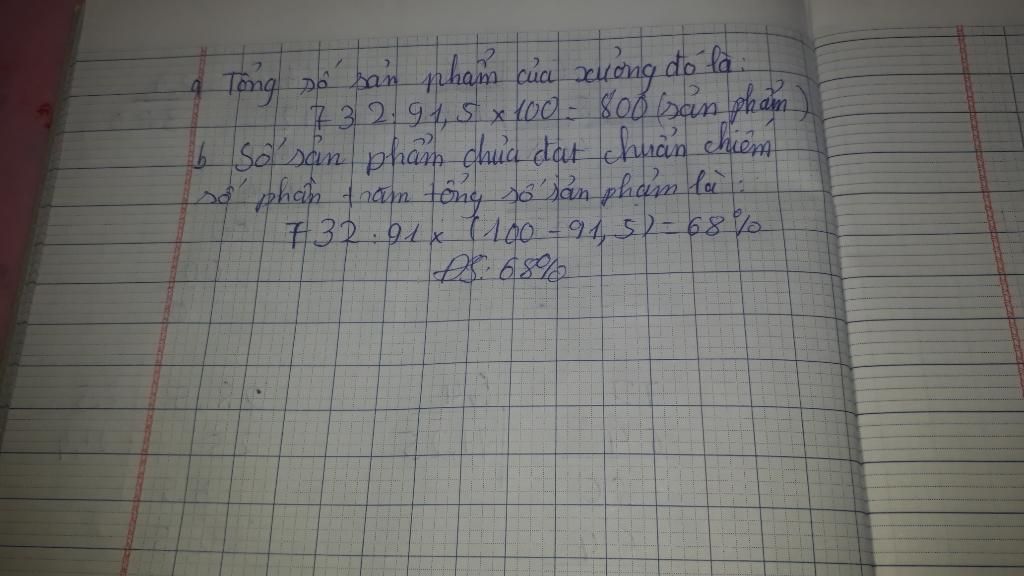 a Tổng số sản phẩm của xưởng đó là:
732:91,5 x 100 = 800 (sản phẩm)
b Số sản phẩm chưa đạt chuẩn chiếm
số phần trăm tổng số sản phẩm là:
732:91 x (100 - 91,5) = 68%
ĐS: 68%